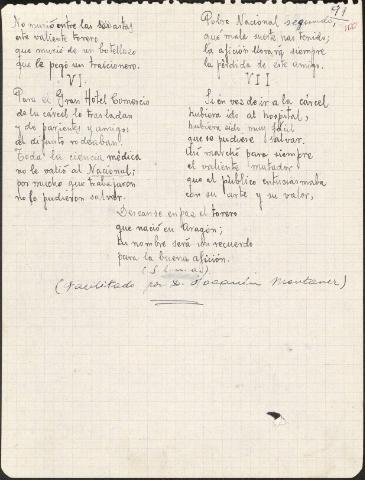 91
100
No murió entre las astas
este valiente torero
que murió de un botellazo
que le pegó un traicionero.
VI.
Para el Gran Hotel Comercio
de la cárcel lo trasladan
y de parientes y amigos
al difunto rodeaban.
Toda la ciencia médica
no le valió al Nacional;
por mucho que trabajaron
no le pudieron salvar.
Pobre Nacional segundo,
qué mala suerte has tenido;
la afición llorará siempre
la pérdida de este amigo.
VII
Si en vez de ir a la cárcel
hubiera ido al hospital,
hubiera sido muy fácil
que se pudiese salvar.
Así marchó para siempre
el valiente matador
que el público entusiasmaba
con su arte y su valor,
Descanse en paz el torero
que nació en Aragón;
Su nombre será un recuerdo
para la buena afición.
(Facilitado por D. Joaquín Montaner)